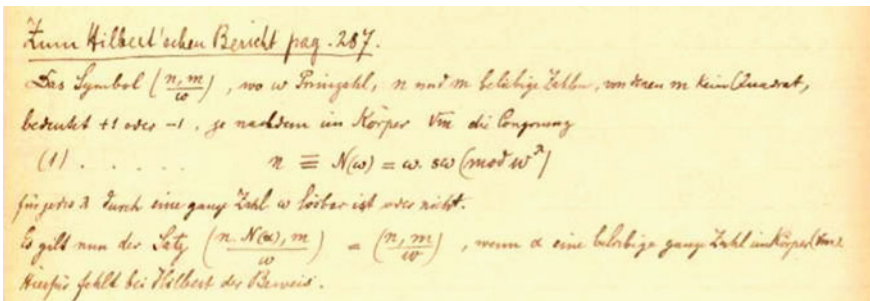 Zum Hilbert'schen Bericht pag. 287.
Das Symbol (n, m / w), wo w Primzahl, n und m beliebige Zahlen, von denen m kein Quadrat,
bedeutet +1 oder -1, je nachdem im Körper √m die Congruenz
(1) . . . . . n ≡ N(ω) = ω. sω (mod w^λ)
für jedes λ durch eine ganze Zahl ω lösbar ist oder nicht.
Es gilt nun der Satz (n. N(α), m / w) = (n, m / w), wenn α eine beliebige ganze Zahl im Körper (√m).
Hierfür fehlt bei Hilbert der Beweis.